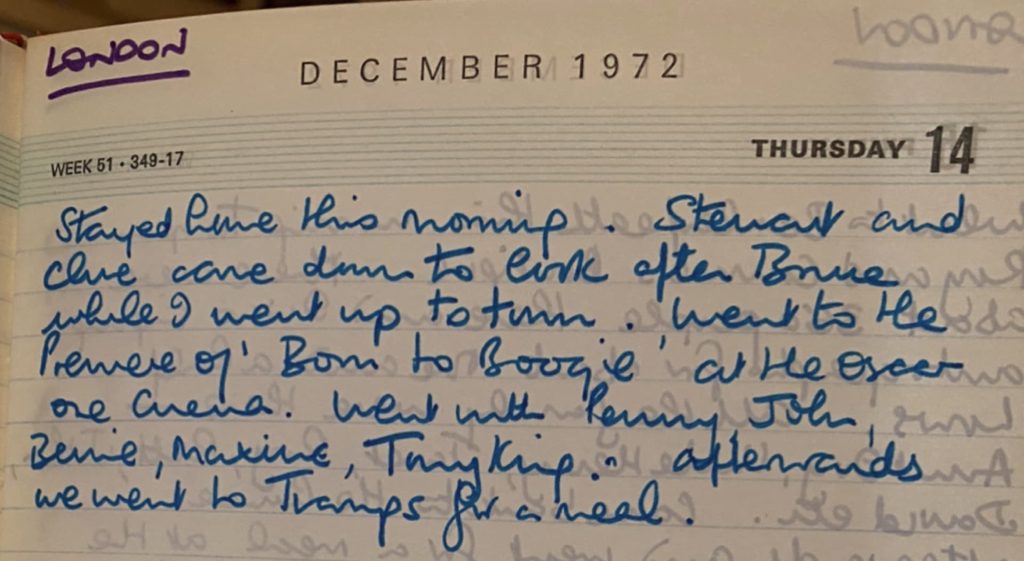 LONDON
DECEMBER 1972
WEEK 51 • 349-17
THURSDAY 14
Stayed home this morning. Stewart and
Clive came down to look after Bruce
while I went up to town. Went to the
Premiere of 'Born to Boogie' at the Oscar
one Cinema. Went with Penny, John,
Bernie, Maxine, Tony King. afterwards
we went to Tramps for a meal.